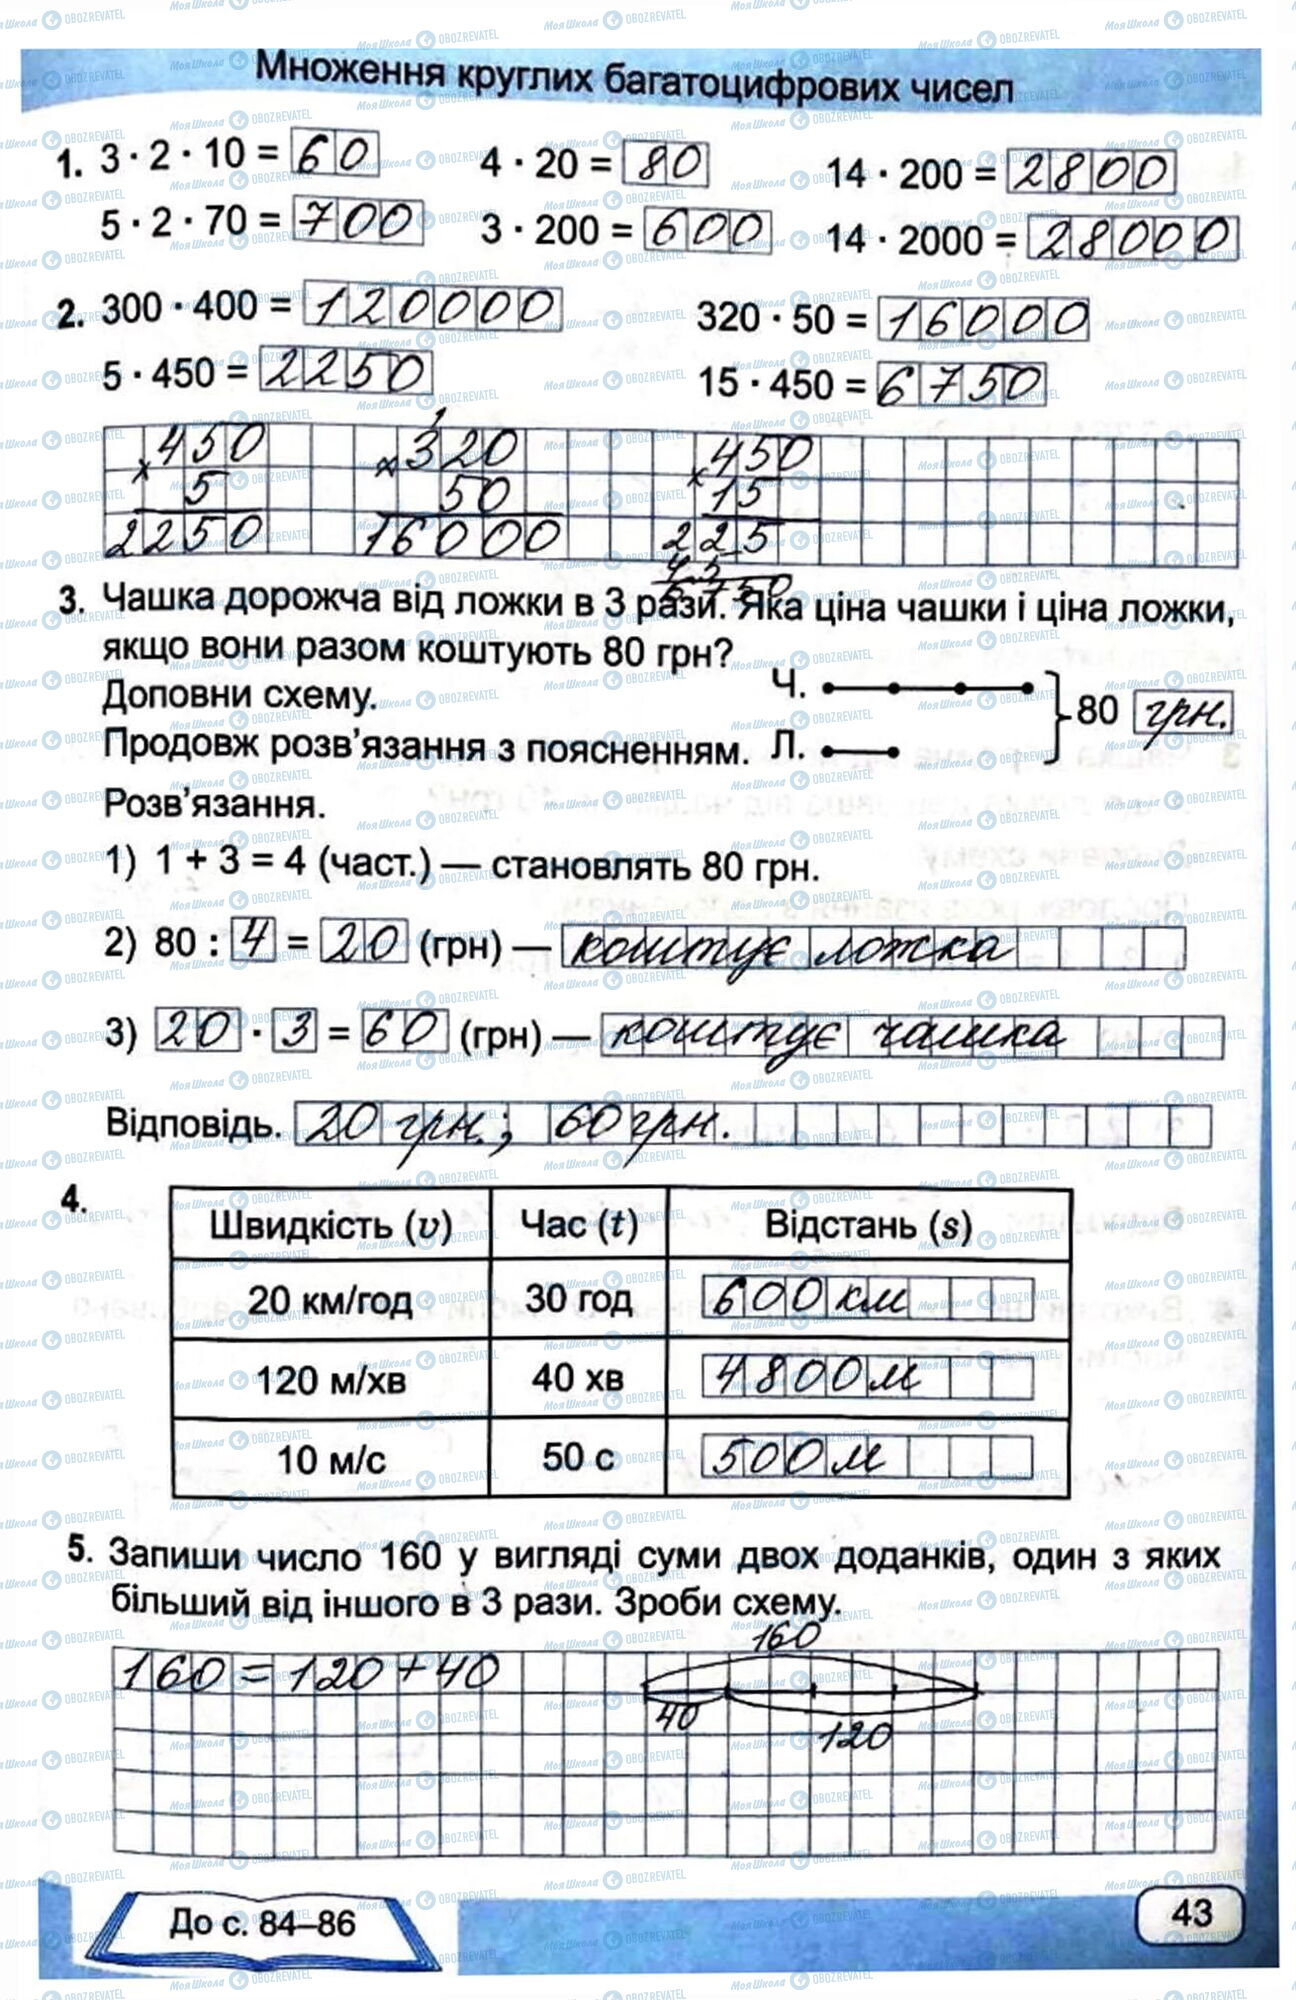 Множення круглих багатоцифрових чисел
1. 3 · 2 · 10 = 60 4 · 20 = 80 14 · 200 = 2800
5 · 2 · 70 = 700 3 · 200 = 600 14 · 2000 = 28000
2. 300 · 400 = 120000 320 · 50 = 16000
5 · 450 = 2250 15 · 450 = 6750
1
× 450 × 320 × 450
5 50 15
2250 16000 225
45
6750
3. Чашка дорожча від ложки в 3 рази. Яка ціна чашки і ціна ложки,
якщо вони разом коштують 80 грн?
Доповни схему. Ч.
80 грн.
Продовж розв'язання з поясненням. Л.
Розв'язання.
1) 1 + 3 = 4 (част.) — становлять 80 грн.
2) 80 : 4 = 20 (грн) — коштує ложка
3) 20 · 3 = 60 (грн) — коштує чашка
Відповідь. 20 грн.; 60 грн.
4.
Швидкість (v) Час (t) Відстань (s)
20 км/год 30 год 600 км
120 м/хв 40 хв 4800 м
10 м/с 50 с 500 м
5. Запиши число 160 у вигляді суми двох доданків, один з яких
більший від іншого в 3 рази. Зроби схему.
160
160 = 120 + 40
40 120
До с. 84–86
43
МояШкола OBOZREVATEL